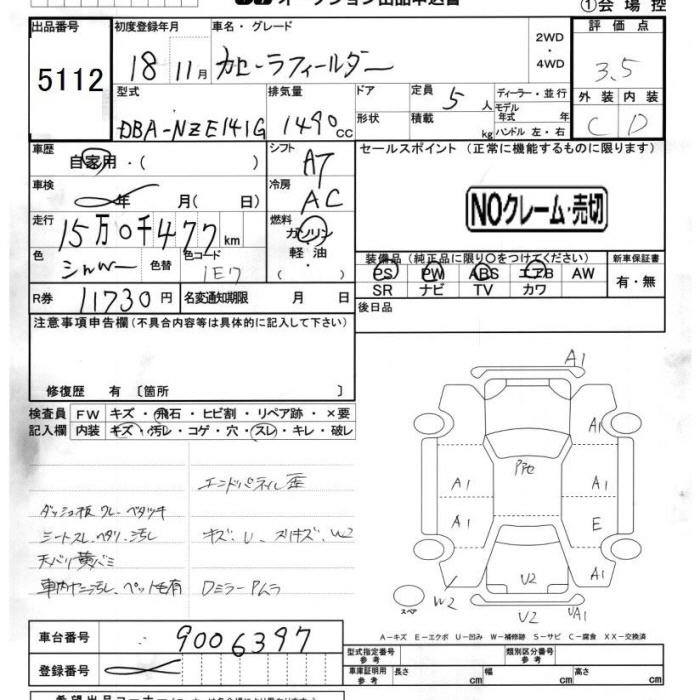 オークション出品申込書
①会場控
出品番号
5112
初度登録年月
車名・グレード
18年 11月
カローラフィールダー
2WD
・
4WD
評価点
3.5
型式
DBA-NZE141G
排気量
1490cc
ドア
形状
定員
5人
積載
kg
ディーラー・並行
モデル
年式 年
ハンドル 左・右
外装
内装
C
D
車歴
自家用・( )
シフト
AT
車検
年 月( 日)
冷房
AC
走行
15万0千477km
燃料
ガソリン
軽油
・( )
色
シルバー
色替
色コード
1E7
R券
11730円
名変通知期限 月 日
セールスポイント (正常に機能するものに限ります)
NOクレーム・売切
装備品 (純正品に限り○をつけてください)
新車保証書
PS
PW
ABS
エアB
AW
SR
ナビ
TV
カワ
有・無
後日品
注意事項申告欄(不具合内容等は具体的に記入して下さい)
修復歴 有 〔箇所 〕
検査員
記入欄
FW
キズ・飛石・ヒビ割・リペア跡・×要
内装
キズ・汚レ・コゲ・穴・スレ・キレ・破レ
エンドパネル歪
ダッシュ板 クレーベタツキ
シートスレ、ヘタリ、汚レ
キズ、U、スリキズ、W2
天バリ黄バミ
車内ヤニ汚レ、ペット毛有
Dミラー Pムラ
A1
A1
A1
A1
Pπe
A1
E
A1
W2
スペア
U2
U2
UA1
A-キズ E-エクボ U-凹み W-補修跡 S-サビ C-腐食 XX-交換済
車台番号
9006397
登録番号
型式指定番号
参考
類別区分番号
参考
車庫証明用
参考
長さ
cm
幅
cm
高さ
cm